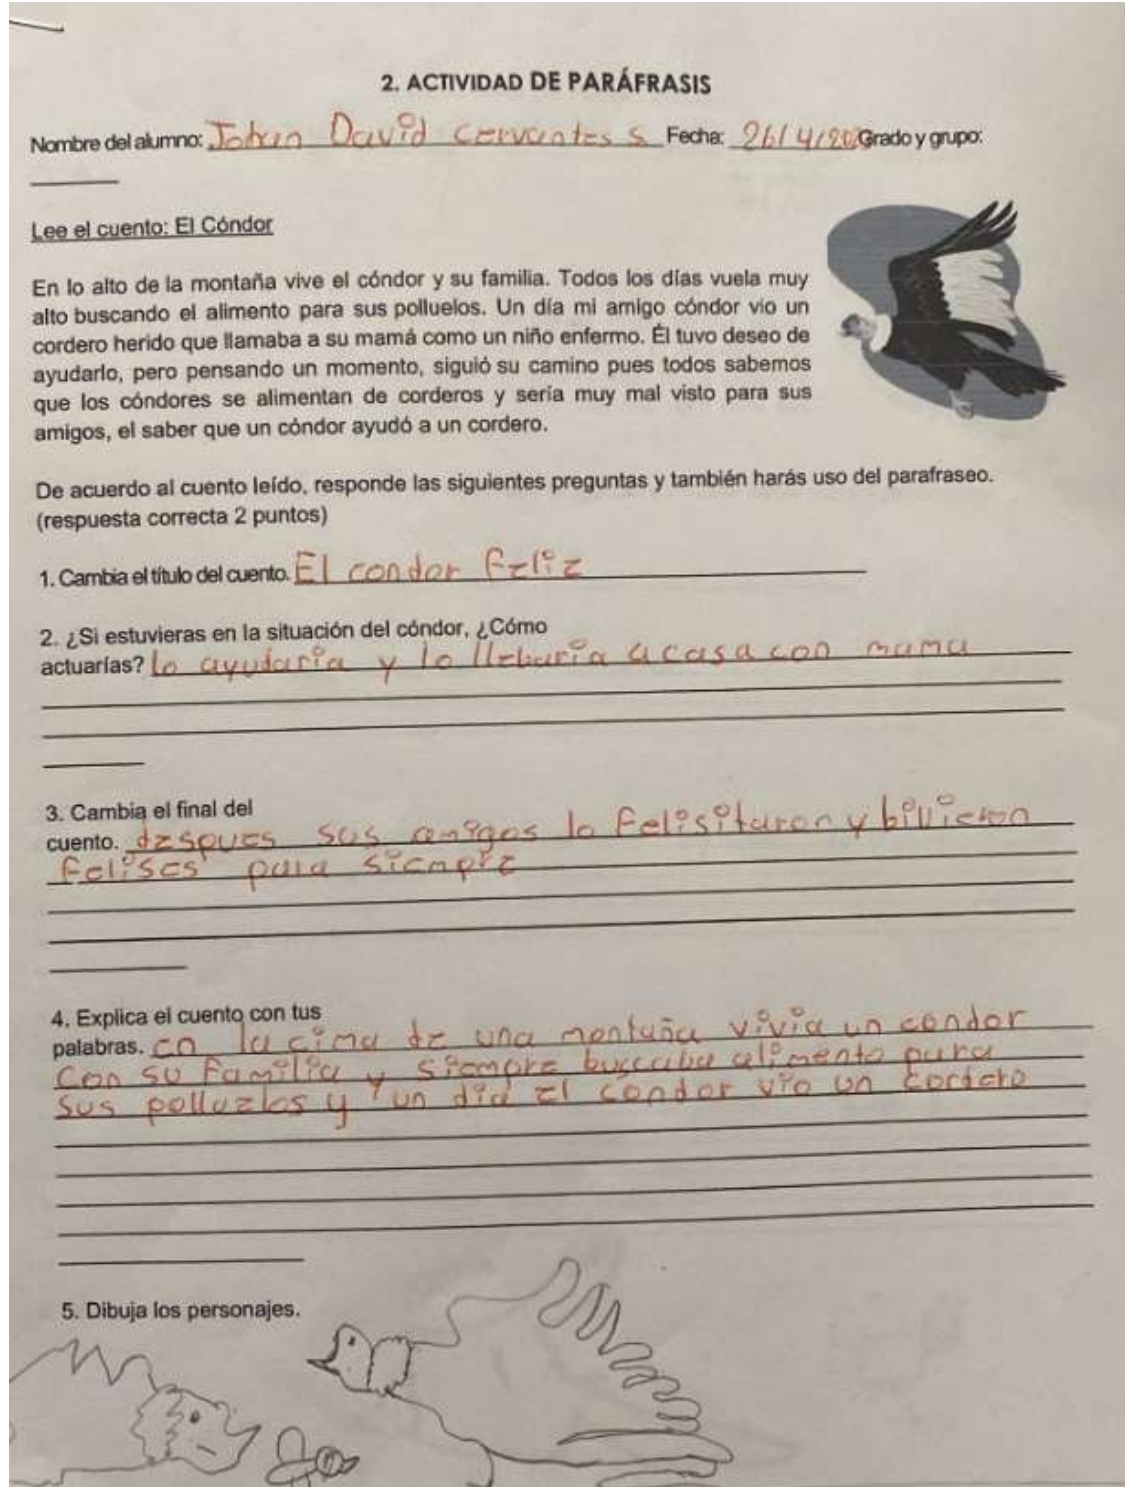 2. ACTIVIDAD DE PARÁFRASIS
Nombre del alumno: Johan David Cervantes S Fecha: 26/4/20 Grado y grupo:
Lee el cuento: El Cóndor
En lo alto de la montaña vive el cóndor y su familia. Todos los días vuela muy
alto buscando el alimento para sus polluelos. Un día mi amigo cóndor vio un
cordero herido que llamaba a su mamá como un niño enfermo. Él tuvo deseo de
ayudarlo, pero pensando un momento, siguió su camino pues todos sabemos
que los cóndores se alimentan de corderos y sería muy mal visto para sus
amigos, el saber que un cóndor ayudó a un cordero.
De acuerdo al cuento leído, responde las siguientes preguntas y también harás uso del parafraseo.
(respuesta correcta 2 puntos)
1. Cambia el título del cuento. El condor feliz
2. ¿Si estuvieras en la situación del cóndor, ¿Cómo
actuarías? lo ayudaria y lo llebaria a casa con mama
3. Cambia el final del
cuento. despues sus amigos lo felisitaron y billieron
felises para siempre
4. Explica el cuento con tus
palabras. en la cima de una montaña vivia un condor
con su familia y siempre buscaba alimento para
sus polluelos y un dia el condor vio un cordero
5. Dibuja los personajes.